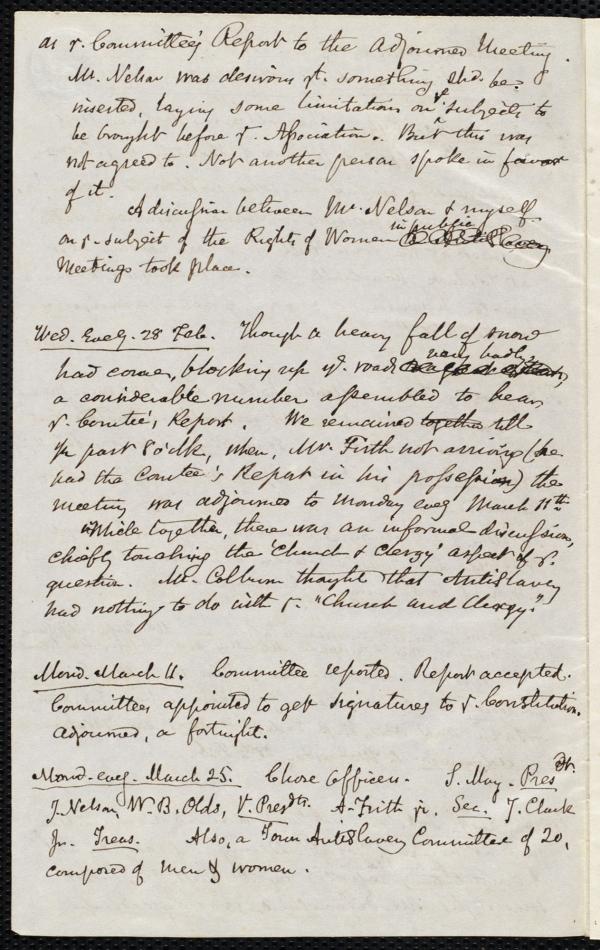 as ye. Committee's Report to the Adjourned Meeting.
Mr. Nelson was desirous yt. something shd. be
inserted, laying some limitation on ye subjects to
be brought before ye. Association. But this was
not agreed to. Not another person spoke in favor
of it.
A discussion between Mr. Nelson & myself
on ye. subject of the Rights of Women in public
Meetings took place.
Wed. Eveg. 28 Feb. Though a heavy fall of snow
had come, blocking up ye. roads very badly,
a considerable number assembled to hear
ye. Comtee's Report. We remained together till
½ past 8 o'clk, when, Mr. Firth not arriving (he
had the Comtee's Report in his possession) the
meeting was adjourned to Monday eveg March 11th
While together, there was an informal discussion,
chiefly touching the 'Church & Clergy' aspect of ye.
question. Mr. Colburn thought that Antislavery
had nothing to do with ye. "Church and Clergy."
Mond. March 11. Committee reported. Report accepted.
Committees appointed to get signatures to ye. Constitution.
Adjourned, a fortnight.
Mond. eveg. March 25. Chose Officers. S. May. Presdt.
J. Nelson, W. B. Olds, V. Presdts. A. Firth jr. Sec. J. Clark
Jr. Treas. Also, a Town AntiSlavery Committee of 20,
composed of men & women.